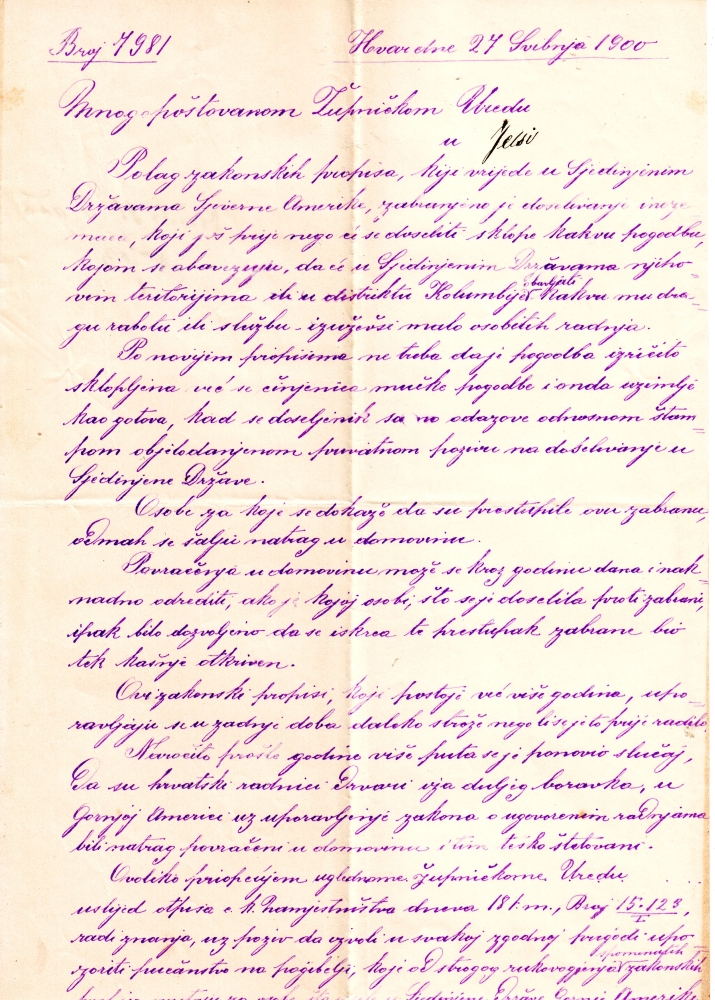 Broj 7981
Hvar dne 27 Svibnja 1900
Mnogopoštovanom Župničkom Uredu
u Jelsi
Polag zakonskih propisa, koji vrijede u Sjedinjenim
Državama Sjeverne Amerike, zabranjeno je doselivanje inoze
maca, koji još prije nego će se doseliti sklope kakvu pogodbu,
kojom se obavezuju, da će u Sjedinjenim Državama njiho-
vim teritorijima ili u distriktu Kolumbije obavljati kakvu mu dra-
gu rabotu ili službu - izuzevši malo osobitih radnja.
Po novijim propisima ne treba da je pogodba izričito
sklopljena već se činjenica mučke pogodbe i onda uzimlje
kao gotova, kad se doseljenik sa no odazove odnosnom štam-
pom objelodanjenom privatnom pozivu na doselivanje u
Sjedinjene Države.
Osobe za koje se dokaže da su prestupile ovu zabranu,
odmah se šalju natrag u domovinu.
Povraćenja u domovinu može se kroz godinu dana i nak-
nadno odrediti, ako je kojoj osobi, što se je doselila proti zabrani,
ipak bilo dozvoljeno da se iskrca te prestupak zabrane bio
tek kašnje otkriven.
Ovi zakonski propisi, koji postoje već više godina, upo-
ravljaju se u zadnje doba daleko strože nego li se je to prije radilo.
Naročito prošle godine više puta se je ponovio slučaj,
da su hrvatski radnici Drvari iza duljeg boravka, u
Gornjoj Americi uz uporavljenje zakona o ugovorenim radnjama
bili natrag povraćeni u domovinu i tim teško štetovani.
Ovoliko priopćujem uglednome Župničkome Uredu
uslijed otpisa c. k. Namjestništva dneva 18 t. m., Broj 15.123/I,
radi znanja, uz poziv da izvoli u svakoj zgodnoj prigodi upo-
zoriti pučanstvo na pogibelji, koje od strogog rukovogjenja spomenutih zakonskih